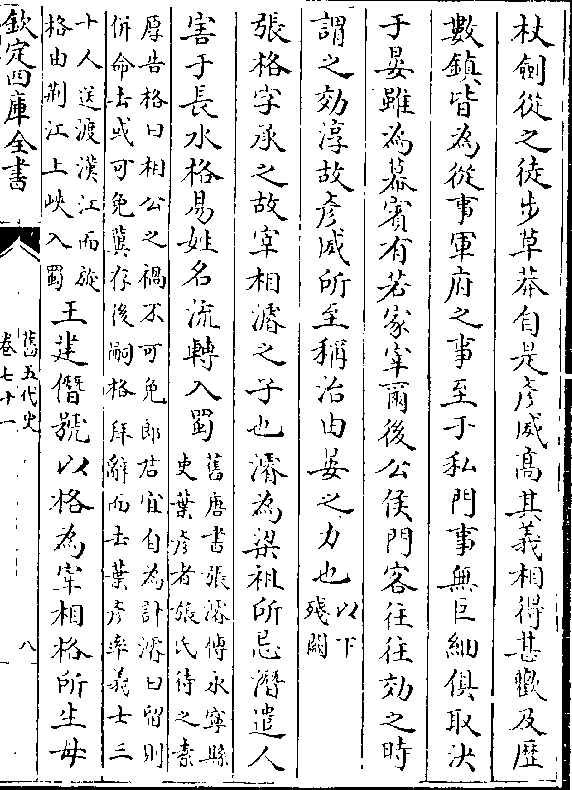 杖劍從之徒步草莽自是彥威高其義相得甚歡及歷
數鎮皆為從事軍府之事至于私門事無巨細俱取決
于晏雖為幕賓有若家宰爾後公侯門客往往効之時
謂之効淳故彥威所至稱治由晏之力也以下
殘闕
張格字承之故宰相濬之子也濬為梁祖所忌潛遣人
害于長水格易姓名流轉入蜀舊唐書張濬傳永寧縣
吏葉彥者張氏待之素
厚告格曰相公之禍不可免郎君宜自為計濬曰留則
併命去或可免冀存後嗣格拜辭而去葉彥率義士三
十人送渡漢江而旋
格由荆江上峽入蜀王建僭號以格為宰相格所生母
欽定四庫全書
舊五代史
卷七十一
八